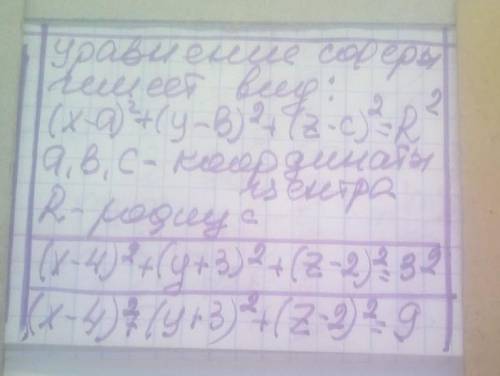 уравнение сферы
имеет вид:
(x-a)²+(y-в)²+(z-c)²=R²
a, в, с - координаты
центра
R - радиус
(x-4)²+(y+3)²+(z-2)²=3²
(x-4)²+(y+3)²+(z-2)²=9